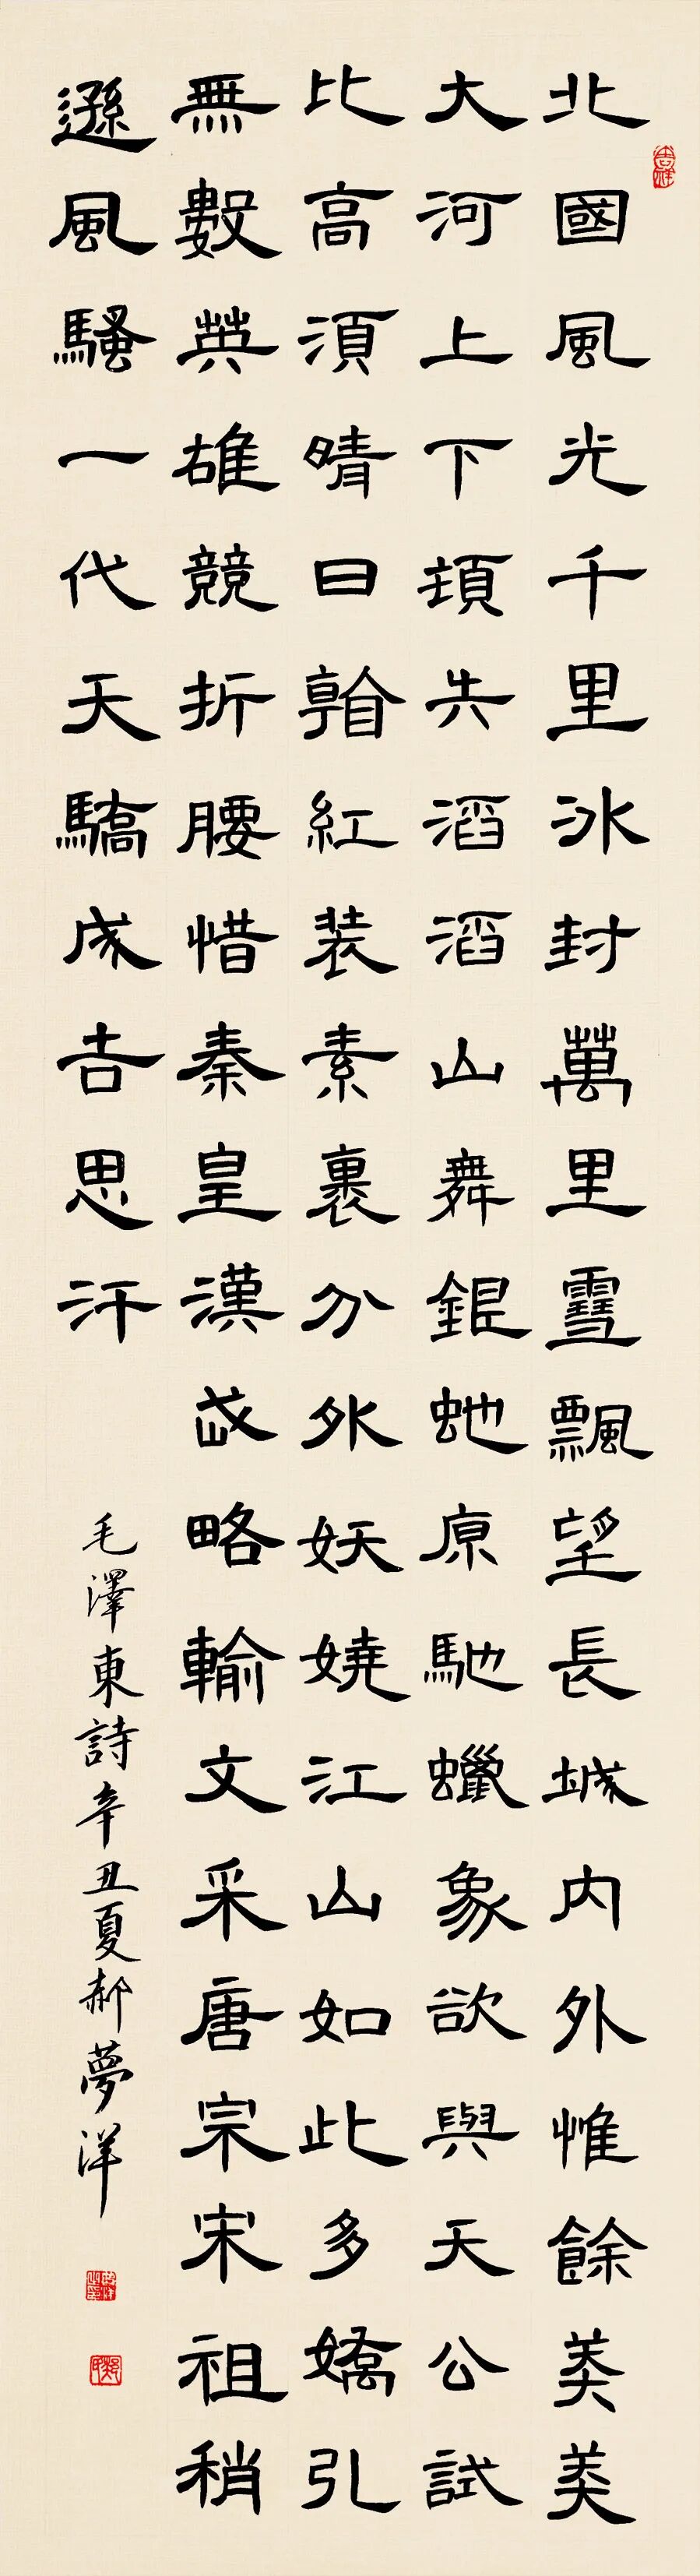 吉祥
北國風光千里冰封萬里雪飄望長城內外惟餘莽莽
大河上下頓失滔滔山舞銀蛇原馳蠟象欲與天公試
比高須晴日看紅装素裹分外妖嬈江山如此多嬌引
無數英雄競折腰惜秦皇漢武略輸文采唐宗宋祖稍
遜風騷一代天驕成吉思汗
毛澤東詩辛丑夏郝夢洋